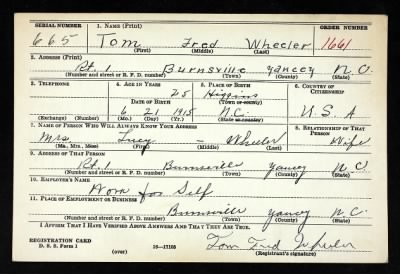 SERIAL NUMBER 1. NAME (Print) ORDER NUMBER
665 Tom Fred Wheeler 1661
(First) (Middle) (Last)
2. ADDRESS (Print)
Rt. 1 Burnsville Yancey N.C.
(Number and street or R. F. D. number) (Town) (County) (State)
3. TELEPHONE 4. AGE IN YEARS 5. PLACE OF BIRTH 6. COUNTRY OF CITIZENSHIP
25 Higgins
DATE OF BIRTH (Town or county)
6 21 1915 N.C. U.S.A
(Exchange) (Number) (Mo.) (Day) (Yr.) (State or country)
7. NAME OF PERSON WHO WILL ALWAYS KNOW YOUR ADDRESS 8. RELATIONSHIP OF THAT PERSON
Mrs Lucy - Wheeler Wife
(Mr., Mrs., Miss) (First) (Middle) (Last)
9. ADDRESS OF THAT PERSON
Rt. 1 Burnsville Yancy N.C
(Number and street or R. F. D. number) (Town) (County) (State)
10. EMPLOYER'S NAME
Work for Self
11. PLACE OF EMPLOYMENT OR BUSINESS
Burnsville Yancy N.C.
(Number and street or R. F. D. number) (Town) (County) (State)
I AFFIRM THAT I HAVE VERIFIED ABOVE ANSWERS AND THAT THEY ARE TRUE.
REGISTRATION CARD
D. S. S. Form 1 16-17105 Tom Fred Wheeler
(over) (Registrant's signature)